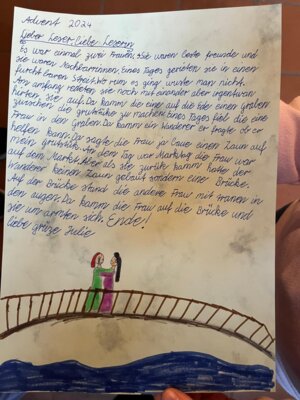 Advent 2024
Liebe Leser, Liebe Leserinn
Es war einmal zwei Frauen. Sie waren beste freunde und
sie waren Nachbarinnen. Eines Tages gerieten sie in einen
furchtbaren Streit. Worum es ging wuste man nicht.
Am anfang redeten sie noch miteinander aber irgentwan
hörten sie auf. Da kamm die eine auf die Ide einen graben
zwischen die grutstüke zu machen. Eines Tages fiel die eine
Frau in den Graben. Da kamm ein Wanderer er fragte ob er
helfen kann. Da sagte die Frau ja baue einen Zaun auf
mein grutstük. An dem Tag war Marktag die Frau war
auf dem Markt. Aber als sie zurük kamm hatte der
Wanderer keinen Zaun gebaut sondern eine Brücke.
Auf der Brücke stand die andere Frau mit tränen in
den augen. Da kamm die Frau auf die Brücke und
sie umarmten sich. Ende!
Liebe grüze Julie